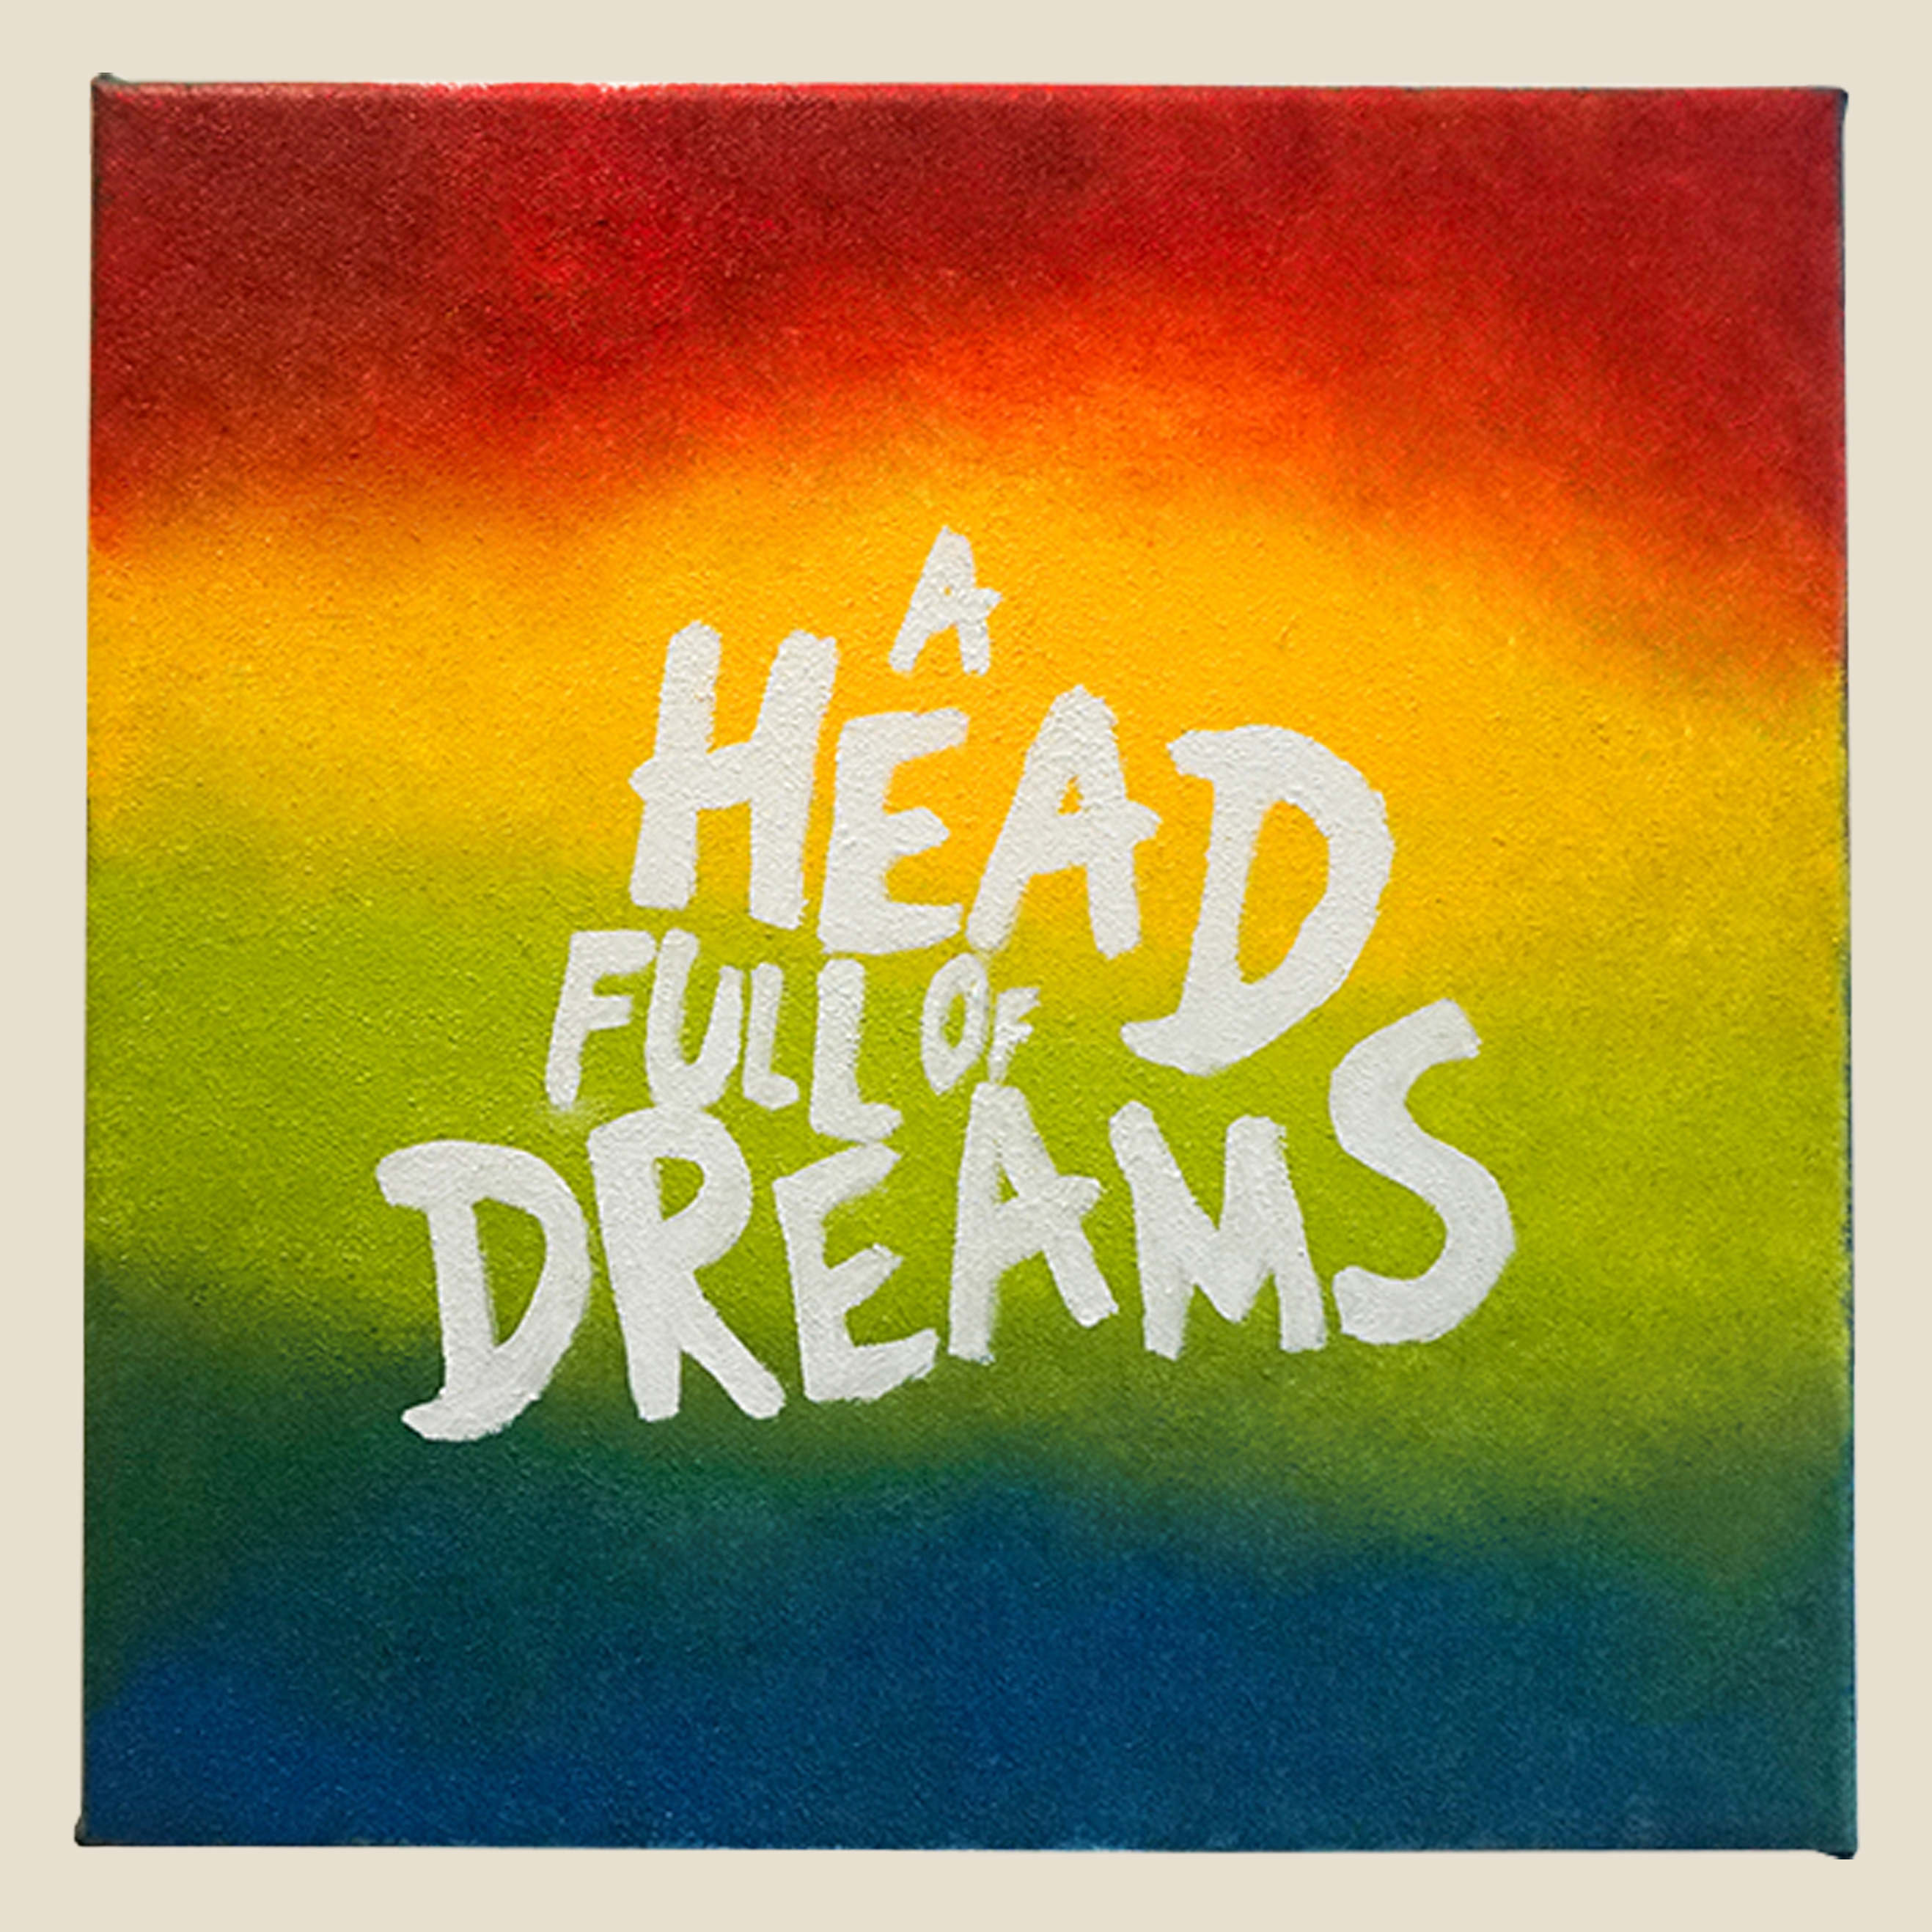 A
HEAD
FULL OF
DREAMS